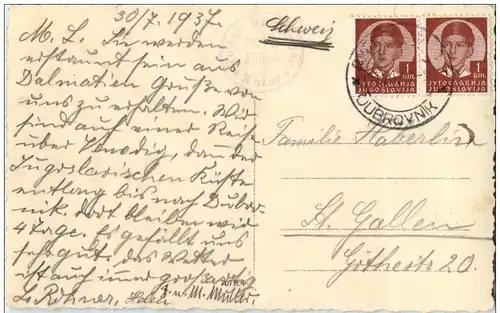 30/7. 1937.
M. L. Sie werden
erstaunt sein aus
Dalmatien Grüße von
uns zu erhalten. Wir
sind auf einer Reise
über Venedig, dann der
Jugoslavischen Küste
entlang bis nach Dubrov-
nik. dort bleiben wir
4 Tage. Es gefällt uns
sehr gut, das Wetter
ist auch immer großartig
L. Rohner,
u. M. Müller.
Schweiz
Kotor
1 DIN.
ЈУГОСЛАВИЈА
JUGOSLAVIJA
1 DIN.
ЈУГОСЛАВИЈА
JUGOSLAVIJA
DUBROVNIK
Familie Haberlin
St. Gallen
Göthestr 20.